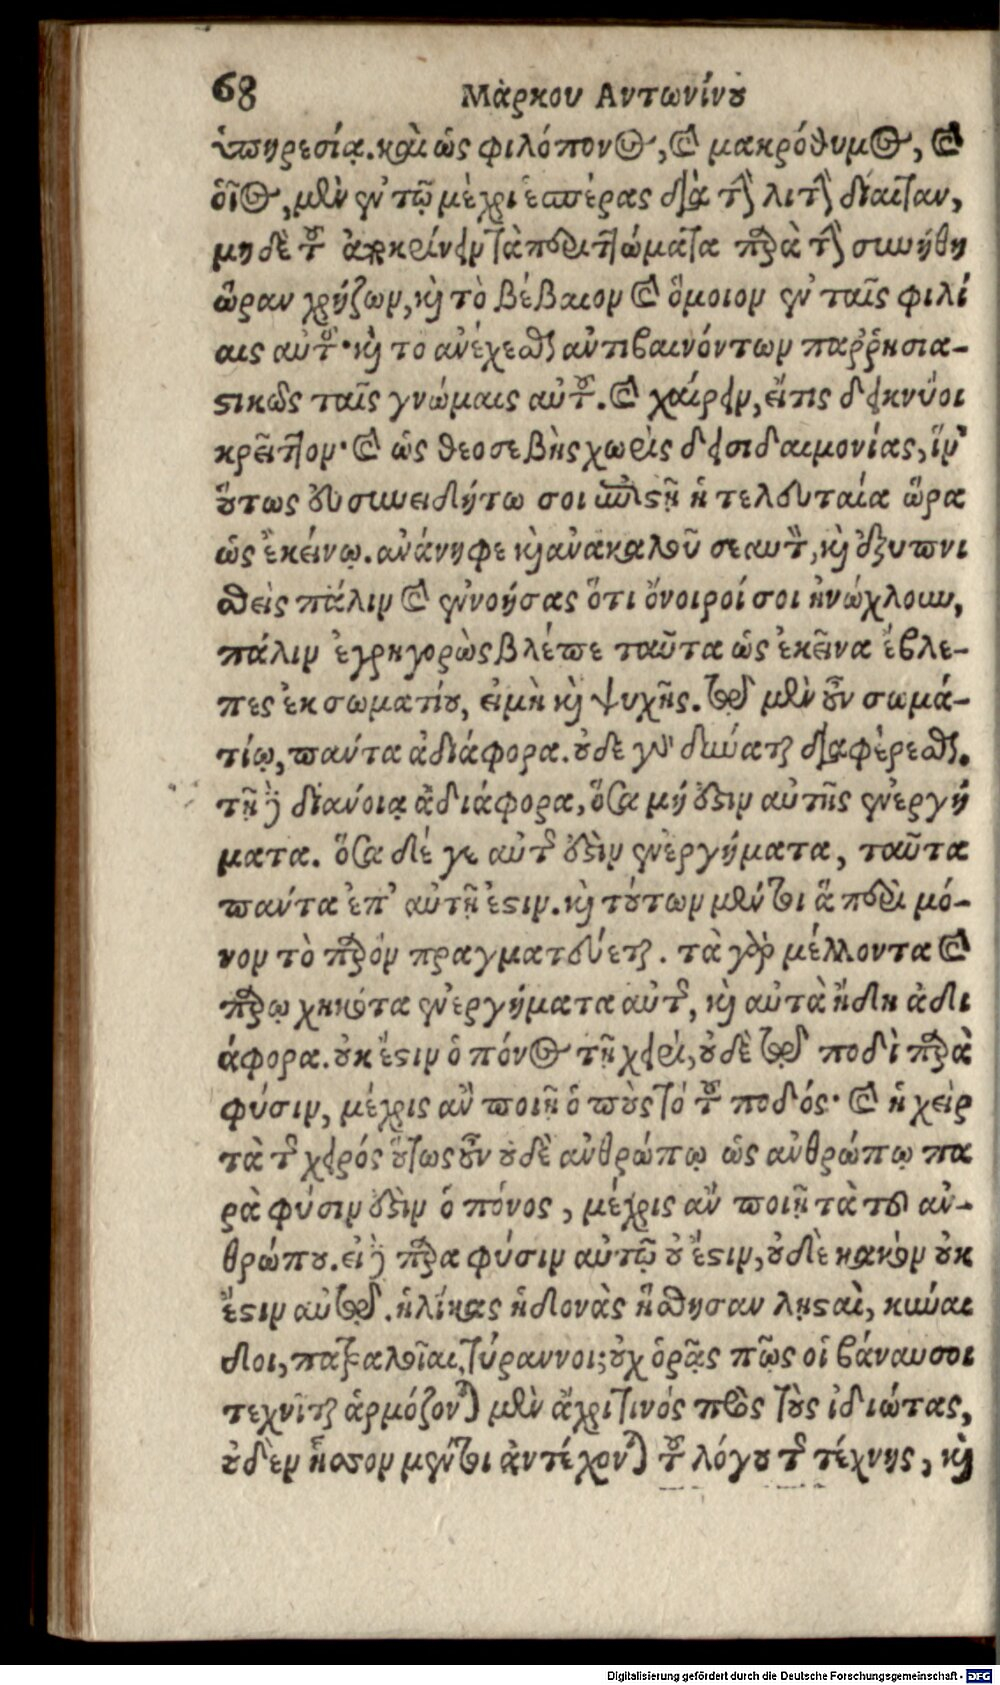 68
Μάρκου Αντωνίνου
ὑπηρεσίᾳ. καὶ ὡς φιλόπονος, καὶ μακρόθυμος, καὶ
οἷος, μὲν ἐν τῷ μέχρι ἑσπέρας διὰ τὴν λιτὴν δίαιταν,
μηδὲ τοῦ ἀποκρίνειν τὰ περιττώματα παρὰ τὴν συνήθη
ὥραν χρῄζων, καὶ τὸ βέβαιον καὶ ὅμοιον ἐν ταῖς φιλί
αις αὐτοῦ· καὶ το ἀνέχεσθαι ἀντιβαινόντων παῤῥησια-
στικῶς ταῖς γνώμαις αὐτοῦ. καὶ χαίρειν, εἴτις δεικνύοι
κρεῖττον· καὶ ὡς θεοσεβὴς χωρὶς δεισιδαιμονίας, ἵν'
οὕτως εὐσυνειδήτω σοι ἐπιστῇ ἡ τελευταία ὥρα
ὡς ἐκείνῳ. ἀνάνηφε καὶ ἀνακαλοῦ σεαυτὸν, καὶ ἐξυπνι
σθεὶς πάλιν καὶ ἐννοήσας ὅτι ὄνοιροί σοι ἠνώχλουν,
πάλιν ἐγρηγορὼς βλέπε ταῦτα ὡς ἐκεῖνα ἔβλε-
πες ἐκ σωματίου, εἰμὴ καὶ ψυχῆς. τῷ μὲν οὖν σωμά-
τίῳ, πάντα ἀδιάφορα. οὐδε γὰρ δύναται διαφέρεσθαι.
τῇ δὲ διανοίᾳ ἀδιάφορα, ὅσα μή ἐστιν αὐτῆς ἐνεργή
ματα. ὅσα δέ γε αὐτῆς ἐστὶν ἐνεργήματα, ταῦτα
πάντα ἐπ' αὐτῇ ἐστιν. καὶ τούτων μέντοι ἃ περὶ μό-
νον τὸ παρὸν πραγματεύεται. τὰ γὰρ μέλλοντα καὶ
παρῳχηκότα ἐνεργήματα αὐτῆς, καὶ αὐτὰ ἤδη ἀδι
άφορα. οὐκ ἔστιν ὁ πόνος τῇ χειρὶ, οὐδὲ τῷ ποδὶ παρὰ
φύσιν, μέχρις ἂν ποιῇ ὁ ποὺς τὸ τοῦ ποδός· καὶ ἡ χεὶρ
τὰ τῆς χειρός οὕτως οὖν οὐδὲ ἀνθρώπῳ ὡς ἀνθρώπῳ πα
ρὰ φύσιν ἐστὶν ὁ πόνος, μέχρις ἂν ποιῇ τὰ τοῦ ἀν-
θρώπου. εἰ δὲ παρα φύσιν αὐτῷ οὐ ἔστιν, οὐδὲ κακὸν οὐκ
ἔστιν αὐτῷ. ἡλίκας ἡδονὰς ἥσθησαν λῃσταὶ, κιναι
δοι, πατραλοῖαι, τύραννοι; οὐχ ὁρᾷς πῶς οἱ βάναυσοι
τεχνῖται ἁρμόζονται μὲν ἄχρι τινός πρὸς τοὺς ἰδιώτας,
οὐδὲν ἧσσον μέντοι ἀντέχονται τοῦ λόγου τῆς τέχνης, καὶ
Digitalisierung gefördert durch die Deutsche Forschungsgemeinschaft - DFG